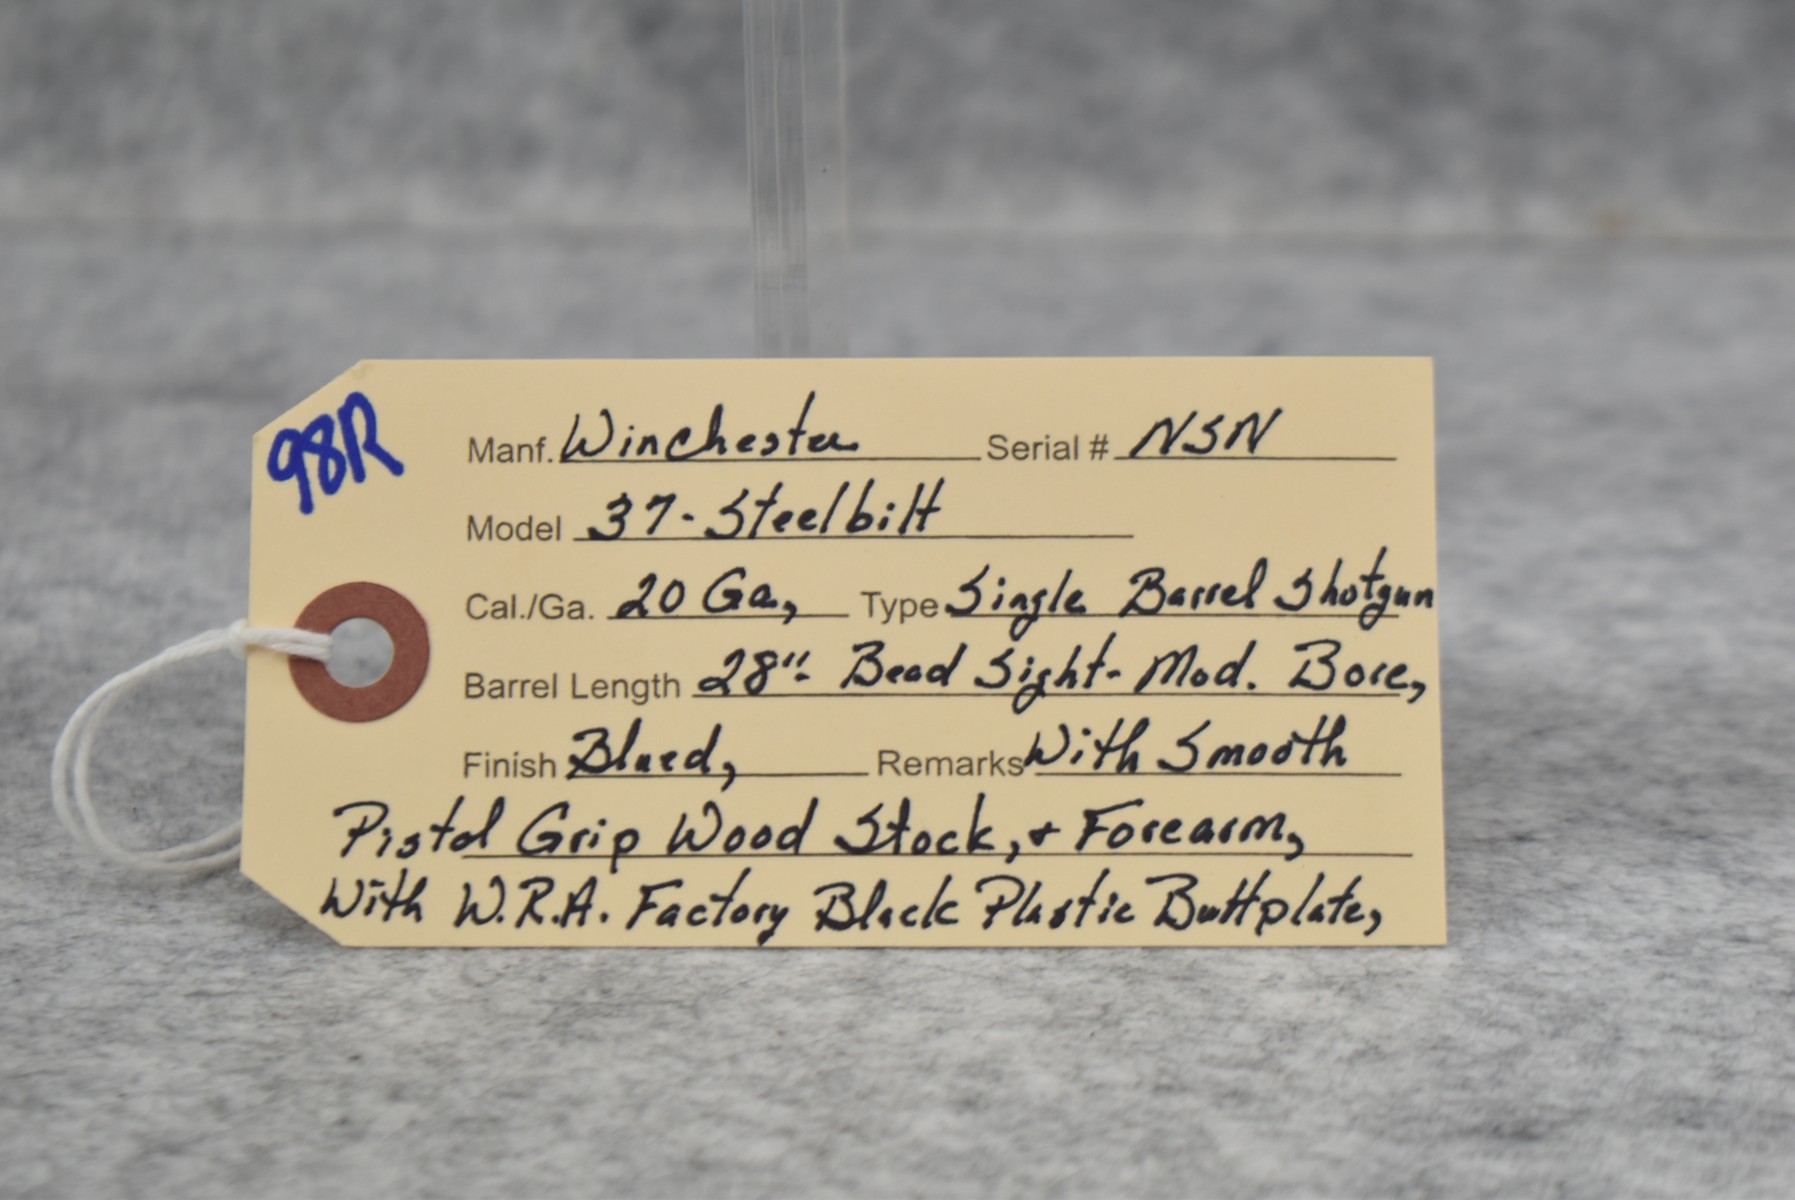 98R
Manf. Winchester Serial # NSN
Model 37-Steelbilt
Cal./Ga. 20 Ga, Type Single Barrel Shotgun
Barrel Length 28"- Bead Sight- Mod. Bore,
Finish Blued, Remarks With Smooth
Pistol Grip Wood Stock, & Forearm,
With W.R.A. Factory Black Plastic Buttplate,